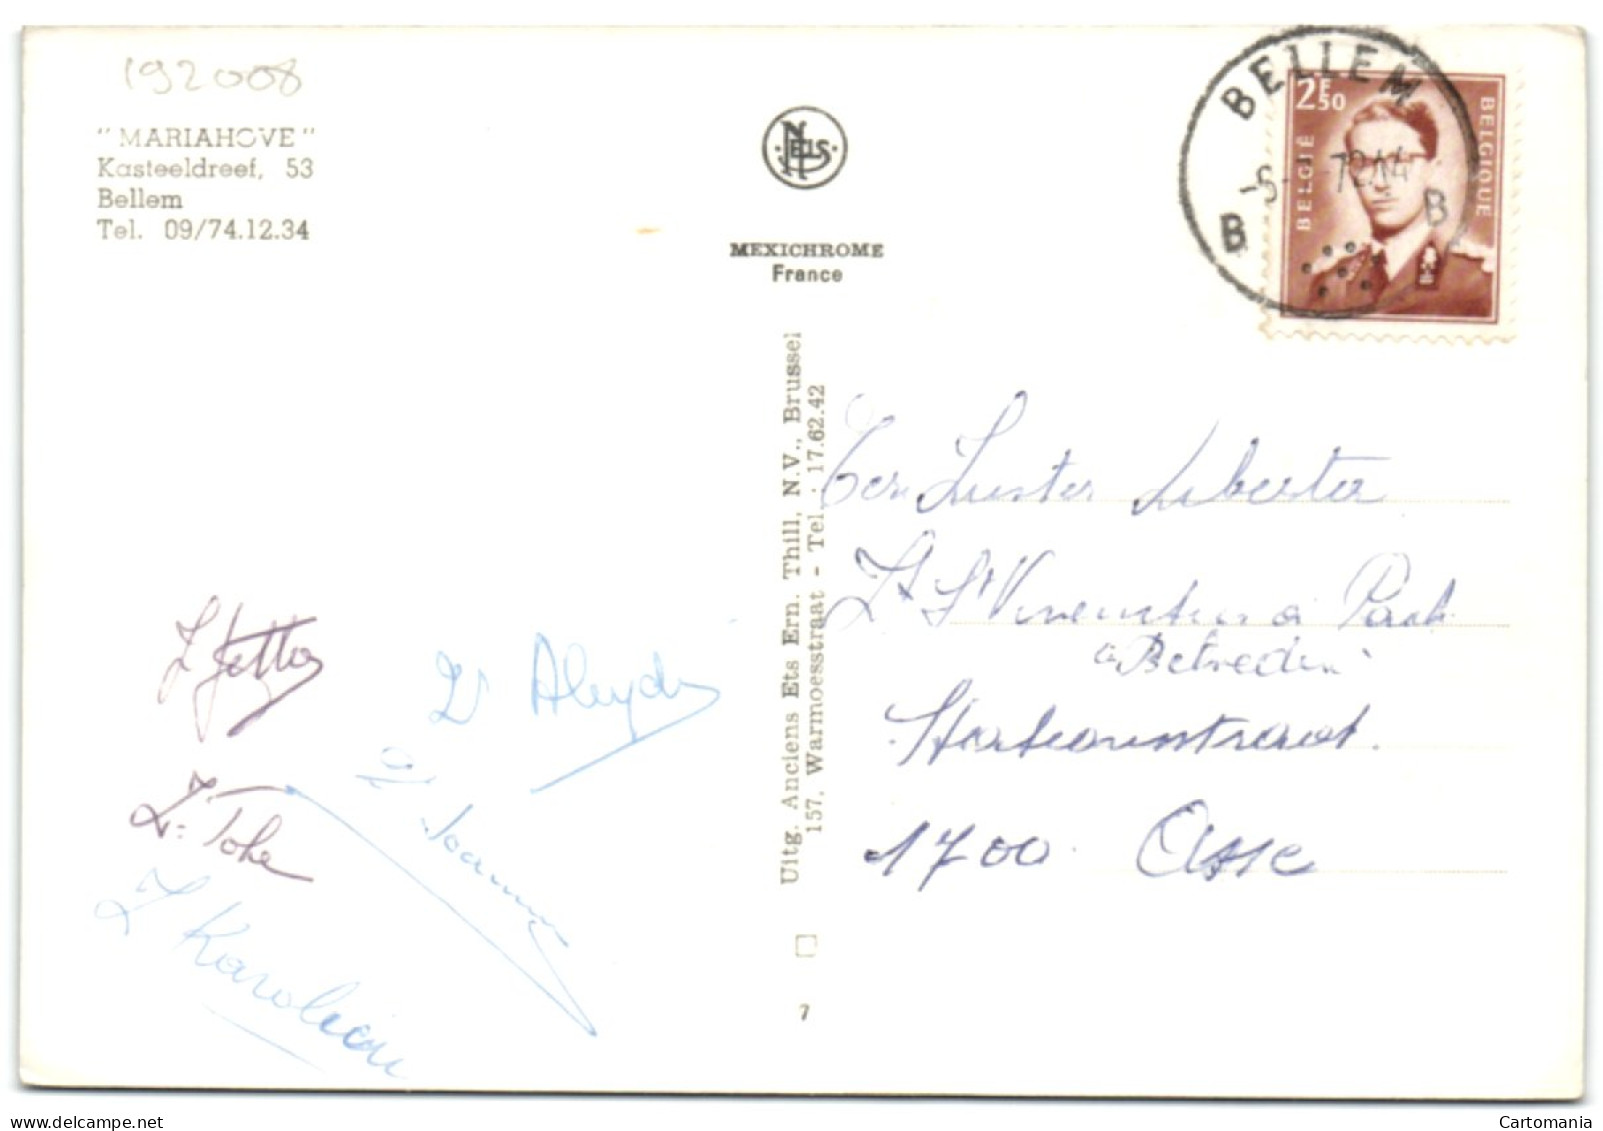 192008
"MARIAHOVE"
Kasteeldreef, 53
Bellem
Tel. 09/74.12.34
NELS
MEXICHROME
France
Uitg. Anciens Ets Ern. Thill, N.V., Brussel
157, Warmoesstraat - Tel. : 17.62.42
7
BELLEM
B B
2F50
BELGIË
BELGIQUE
Eerw Zuster Liberta
St Vincentius à Paul
Asse
1700
Z Jetta
Zr Aleydis
Zr Joanna
Zr Toke
Z Karolien
Cartomania